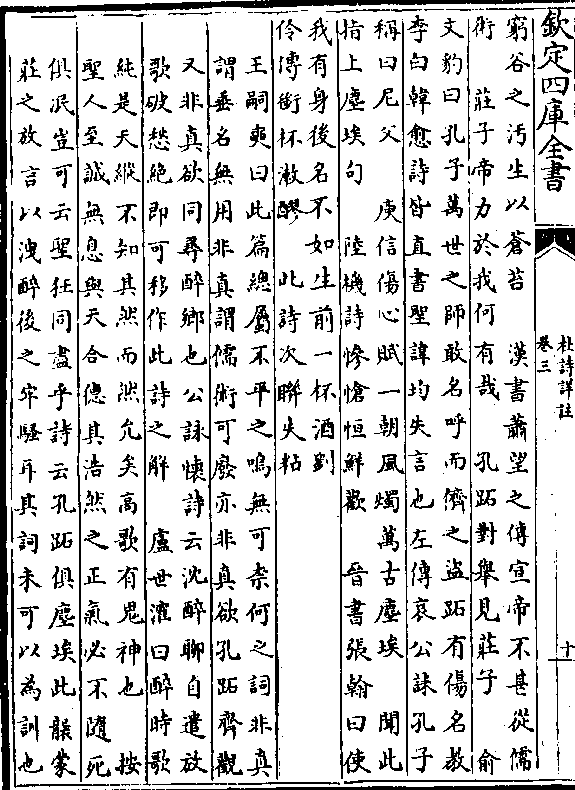 欽定四庫全書
杜詩詳註
卷三
十
窮谷之汚生以蒼苔　漢書蕭望之傳宣帝不甚從儒
術　莊子帝力於我何有哉　孔跖對舉見莊子　俞
文豹曰孔子萬世之師敢名呼而儕之盜跖有傷名教
李白韓愈詩皆直書聖諱均失言也左傳哀公誄孔子
稱曰尼父　庾信傷心賦一朝風燭萬古塵埃　聞此
指上塵埃句　陸機詩慘愴恒鮮歡　晉書張翰曰使
我有身後名不如生前一杯酒劉
伶傳銜杯漱醪　此詩次聯失粘
王嗣奭曰此篇總屬不平之鳴無可柰何之詞非真
謂垂名無用非真謂儒術可廢亦非真欲孔跖齊觀
又非真欲同尋醉鄉也公詠懷詩云沈醉聊自遣放
歌破愁絕即可移作此詩之解　盧世㴶曰醉時歌
純是天縱不知其然而然允矣高歌有鬼神也　按
聖人至誠無息與天合德其浩然之正氣必不隨死
俱泯豈可云聖狂同盡乎詩云孔跖俱塵埃此襲蒙
莊之放言以洩醉後之牢騷耳其詞未可以為訓也